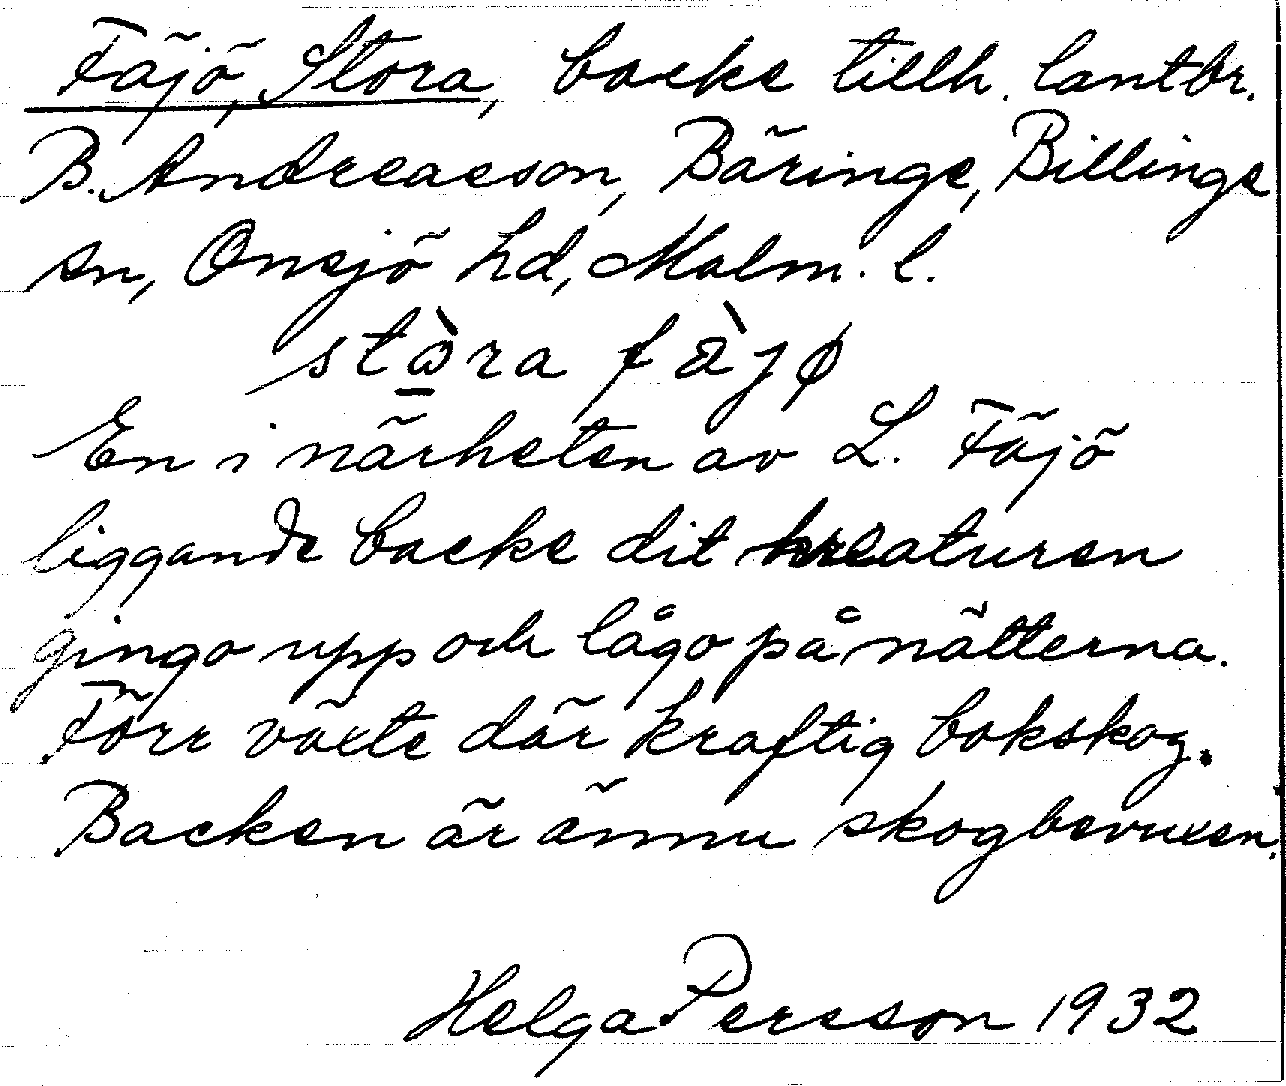 Fäjö, Stora, backe tillh. lantbr.
B. Andreasson, Bäringe, Billinge
sn, Onsjö hd, Malm. l.
stò̱ra fàjø
En i närheten av L. Fäjö
liggande backe dit kreaturen
gingo upp och lågo på nätterna.
Förr växte där kraftig bokskog.
Backen är ännu skogbevuxen.
Helga Persson 1932